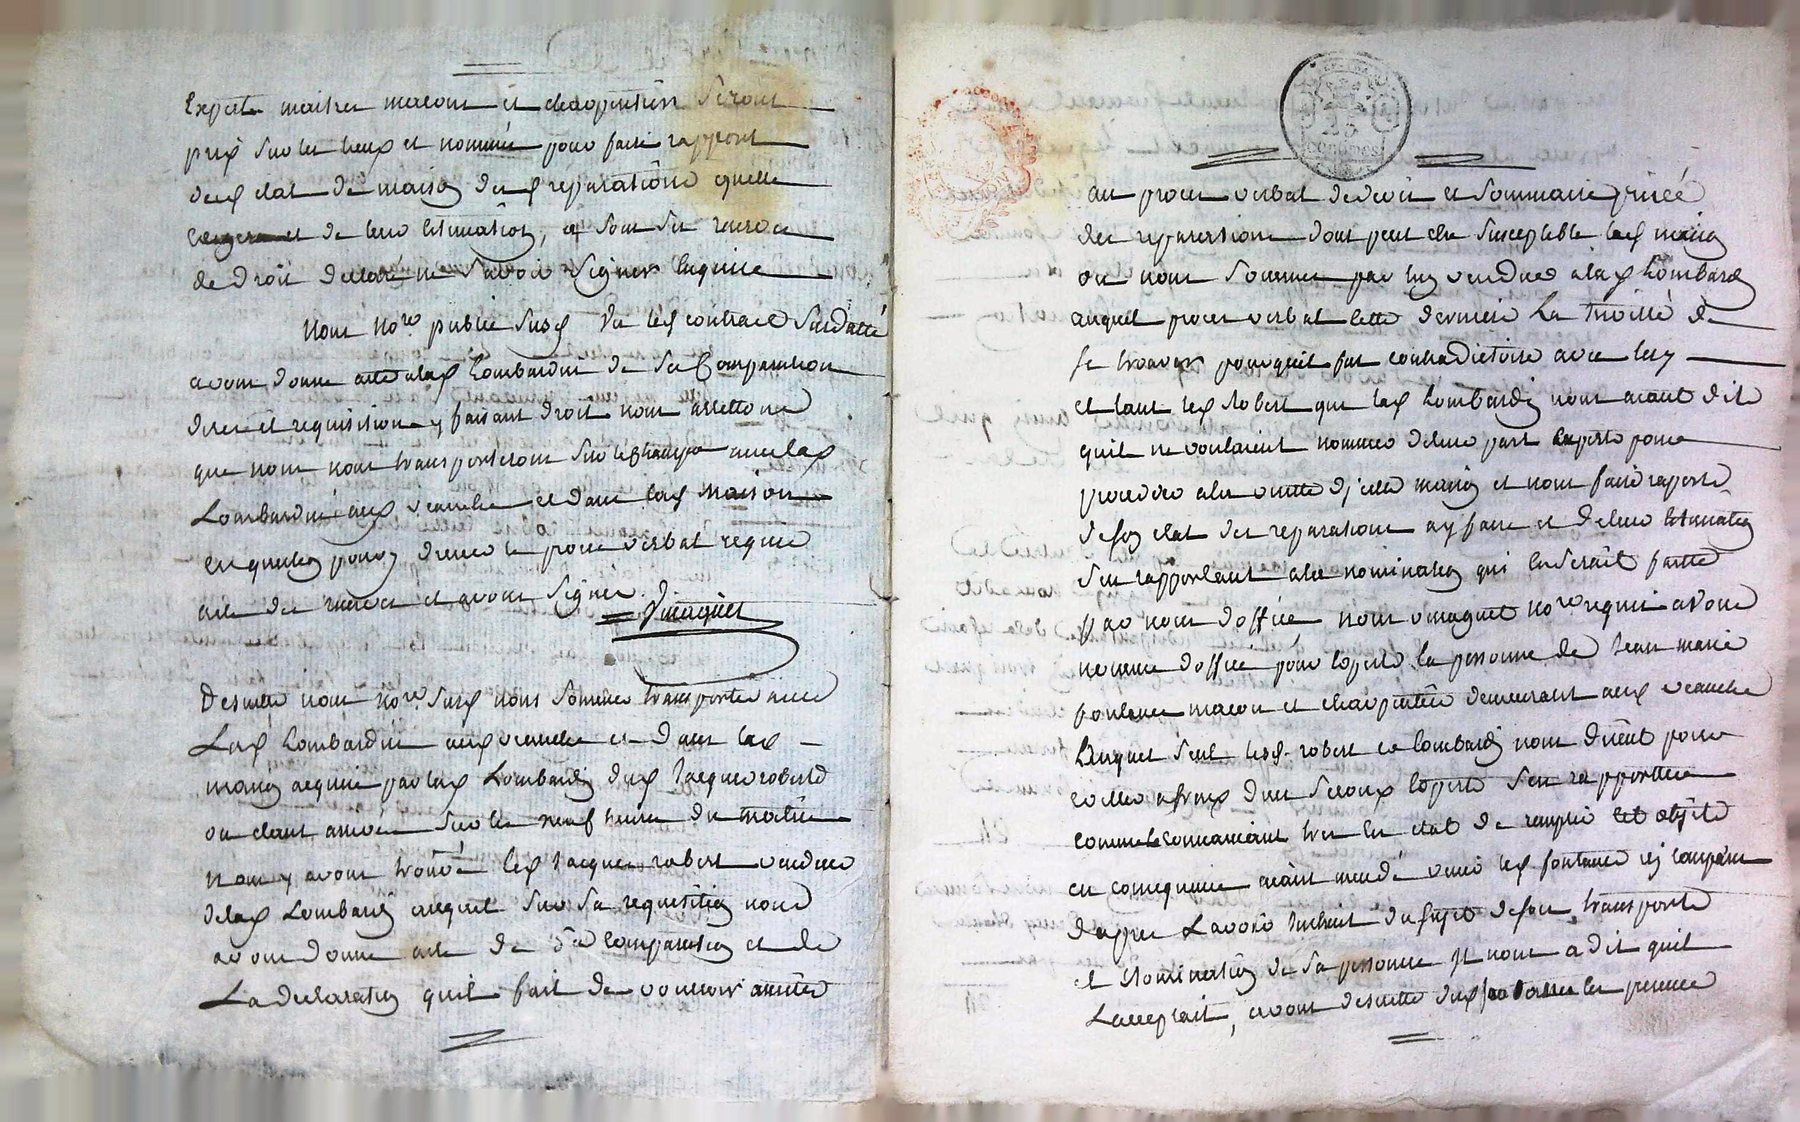 Experts maitres macons et charpentiers seront
pris sur les lieux et nommés pour faire rapport
dud etat de maison des reparations quelle
exigera et de leur Estimation, et sous ses reserves
de droit declaré ne savoir signer Enquise
Nous No.re public susd Vu led contract susdatté
avons donné acte alad Lombardin de sa Comparution
dires et requisitions y faisant droit nous arrettons
que nous nous transporterons sur le champ avec lad
Lombardin aud veauche et dans lad Maison
en question pour y dresser le procès verbal requis
acte des reserves et avons signés.
Desuitte nous No.re susd nous sommes transportés avec
Lad Lombardin aud veauche et dans lad
maison acquise par lad Lombardin dud Jacques robert
ou etant arrivés sur les neuf heures du matin
nous y avons trouvé led Jacques robert vendeur
delad Lombardin auquel sur sa requisition nous
avons donné acte de sa Comparution et de
La declaration quil fait de vouloir assister
25
centimes
au procès verbal descriptif et Sommaire prisée
des reparations dont peut etre susceptible lad maison
ou nous sommes par luy vendue alad Lombardin
auquel procès verbal cette derniere La invité de
se trouver pour quil fut contradictoire avec luy
et tant led Robert que lad Lombardin nous aiant dit
quils ne vouloient nommer de leur part Experts pour
proceder ala visitte d'icelle maison et nous faire raport
de son etat des reparations a y faire et de leur Estimation
sen rapportant ala nomination qui en serait faitte
par nous doffice nous No.re requis avons
nommé doffice pour Experts la personne de Jean marie
fontanes macon et charpentier demeurant aud veauche
Lequel seul lesd. robert et lombardin nous dirent pour
eviter a frais dun second Experts sen rapporter
comme le connaissant tres en etat de remplir cet objet
en consequence aiant mandé venir led fontanes icy comparu
dapres Lavoir instruit du sujet de son transport
et Nomination de sa personne Il nous a dit quil
Lacceptait, avons desuitte dud en presence